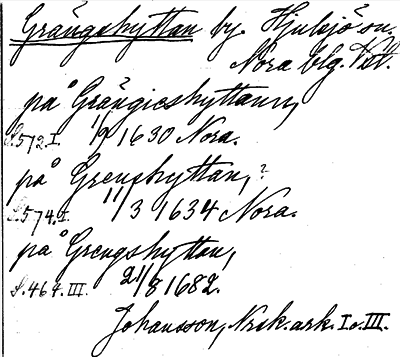 Grängshyttan by. Hjulsjö sn.
Nora blg. Vstl.
på Grängieshyttann,
S.572.I. 1/9 1630 Nora.
på Grenshyttan, ?
S.574.I. 11/3 1634 Nora.
på Grengshyttan,
S.464.III. 21/8 1682.
Johansson, Nrsk. ark. I o. III.